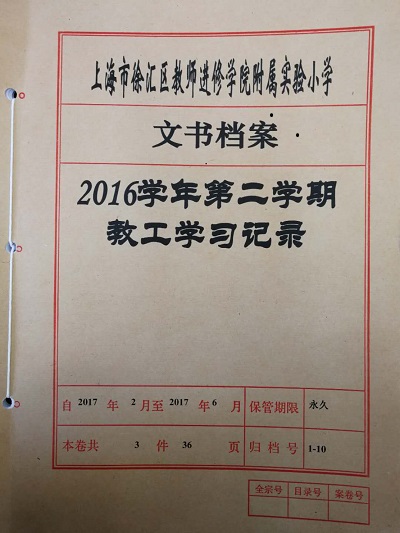 上海市徐汇区教师进修学院附属实验小学
文书档案
2016学年第二学期
教工学习记录
自 2017 年 2 月至 2017 年 6 月 保管期限 永久
本卷共 3 件 36 页 归档号 1-10
全宗号 目录号 案卷号